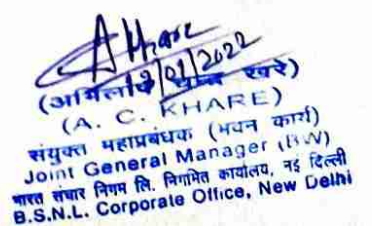 AKhare
12/01/2022
(अभिलाष चन्द खरे)
(A. C. KHARE)
संयुक्त महाप्रबंधक (भवन कार्य)
Joint General Manager (BW)
भारत संचार निगम लि. निगमित कार्यालय, नई दिल्ली
B.S.N.L. Corporate Office, New Delhi